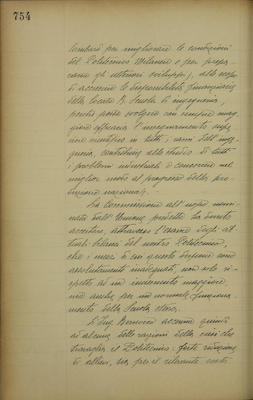 754
lombardi per migliorare le condizioni
del Politecnico Milanese e per prepa-
rare gli ulteriori sviluppi, allo scopo
di accrescere le disponibilità finanziarie
della locale R. Scuola di ingegneria,
perchè possa svolgere con sempre mag-
giore efficacia l'insegnamento supe-
riore scientifico in tutti i rami dell'inge-
gneria, contribuire allo studio di tutti
i problemi industriali e concorrere nel
miglior modo al progresso della pro-
duzione nazionale.
La Commissione all'uopo nomi-
nata dall'Unione predetta ha dovuto
accertare, attraverso l'esame degli at-
tuali bilanci del nostro Politecnico,
che i mezzi di cui questo dispone sono
assolutamente inadeguati, non solo ri-
spetto ad un incremento maggiore,
ma anche per un normale funziona-
mento della Scuola stessa.
L'Ing. accenna quindi
ad alcune delle ragioni della crisi che
travaglia il Politecnico: forte riduzione
di allievi, sia per il rilevante costo